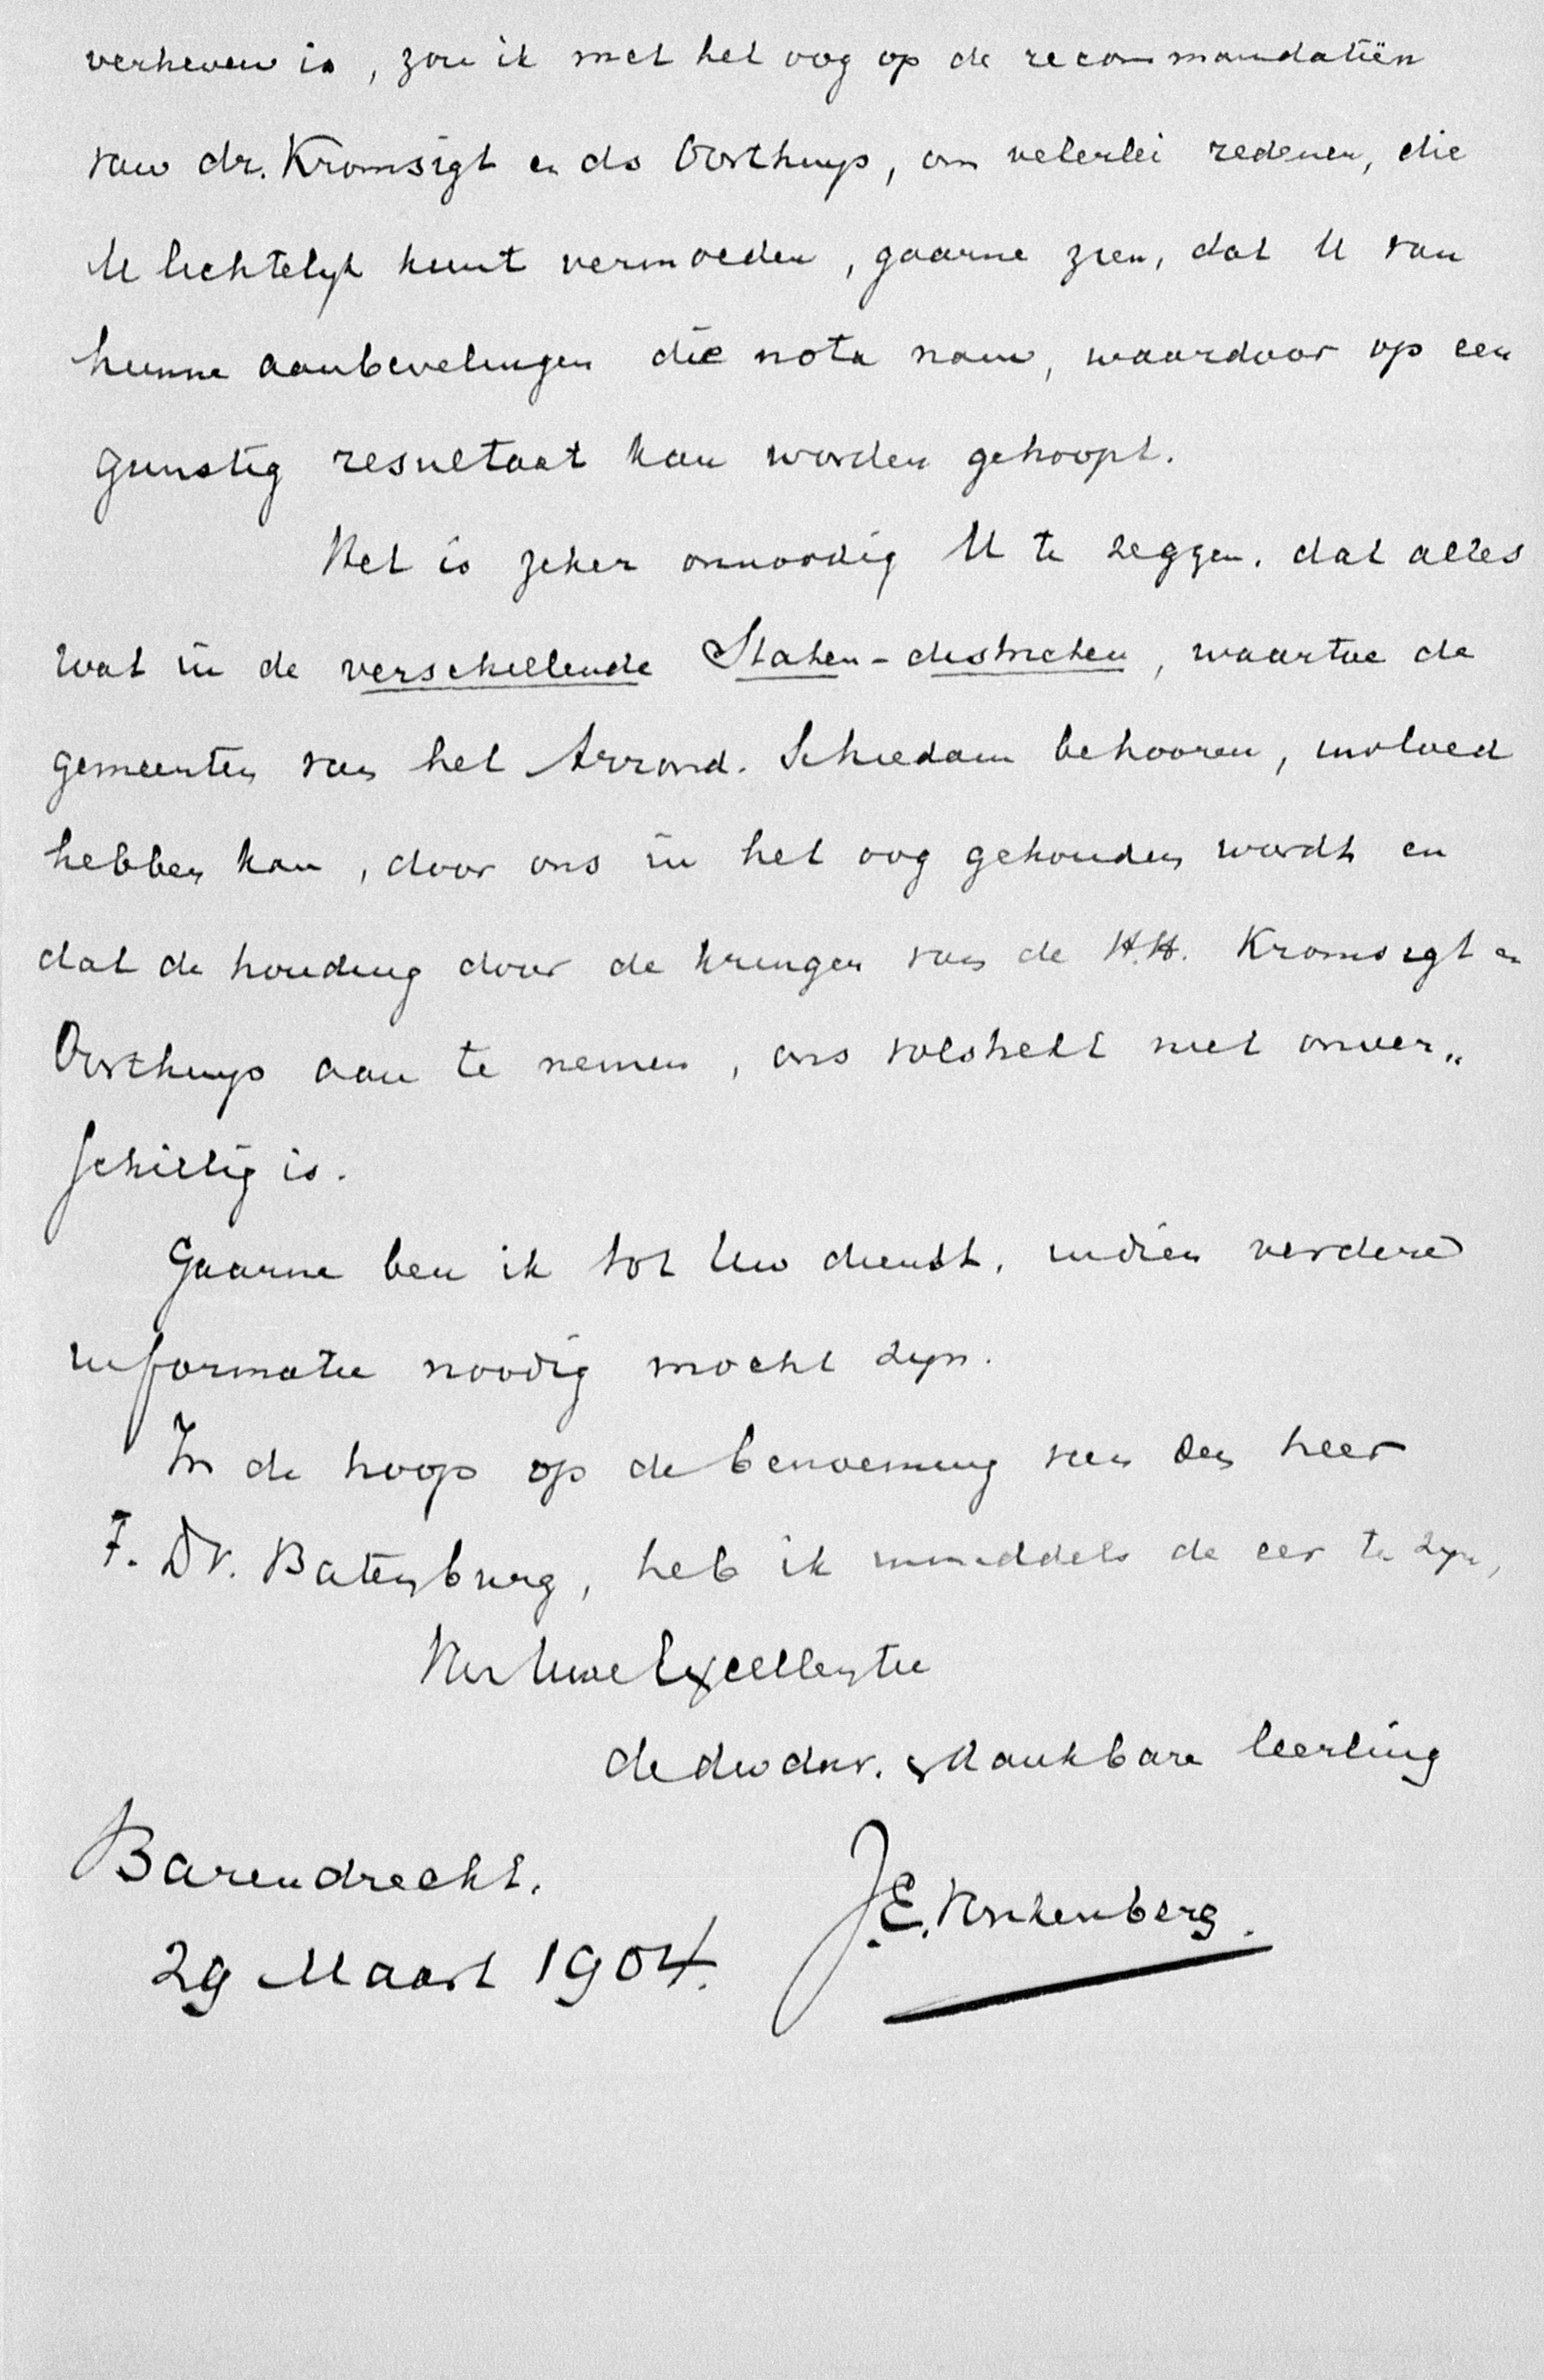 verheven is, zou ik met het oog op de recommandatiën
van dr. Kromsigt en ds Oorthuys, om velerlei redenen, die
U lichtelijk kunt vermoeden, gaarne zien, dat U van
hunne aanbevelingen die nota nam, waardoor op een
gunstig resultaat kan worden gehoopt.
Het is zeker onnoodig U te zeggen, dat alles
wat in de verschillende Staten-districten, waartoe de
gemeenten van het Arrond. Schiedam behooren, invloed
hebben kan, door ons in het oog gehouden wordt en
dat de houding door de kringen van de H.H. Kromsigt en
Oorthuys aan te nemen, ons volstrekt niet onver„
schillig is.
Gaarne ben ik tot Uw dienst, indien verdere
informatie noodig mocht zijn.
In de hoop op de benoeming van den heer
F. Dr. Batenburg, heb ik inmiddels de eer te zijn,
Van Uwe Excellentie
de dwdnr. & dankbare leerling
Barendrecht.
29 Maart 1904.
J.E. Vonkenberg.